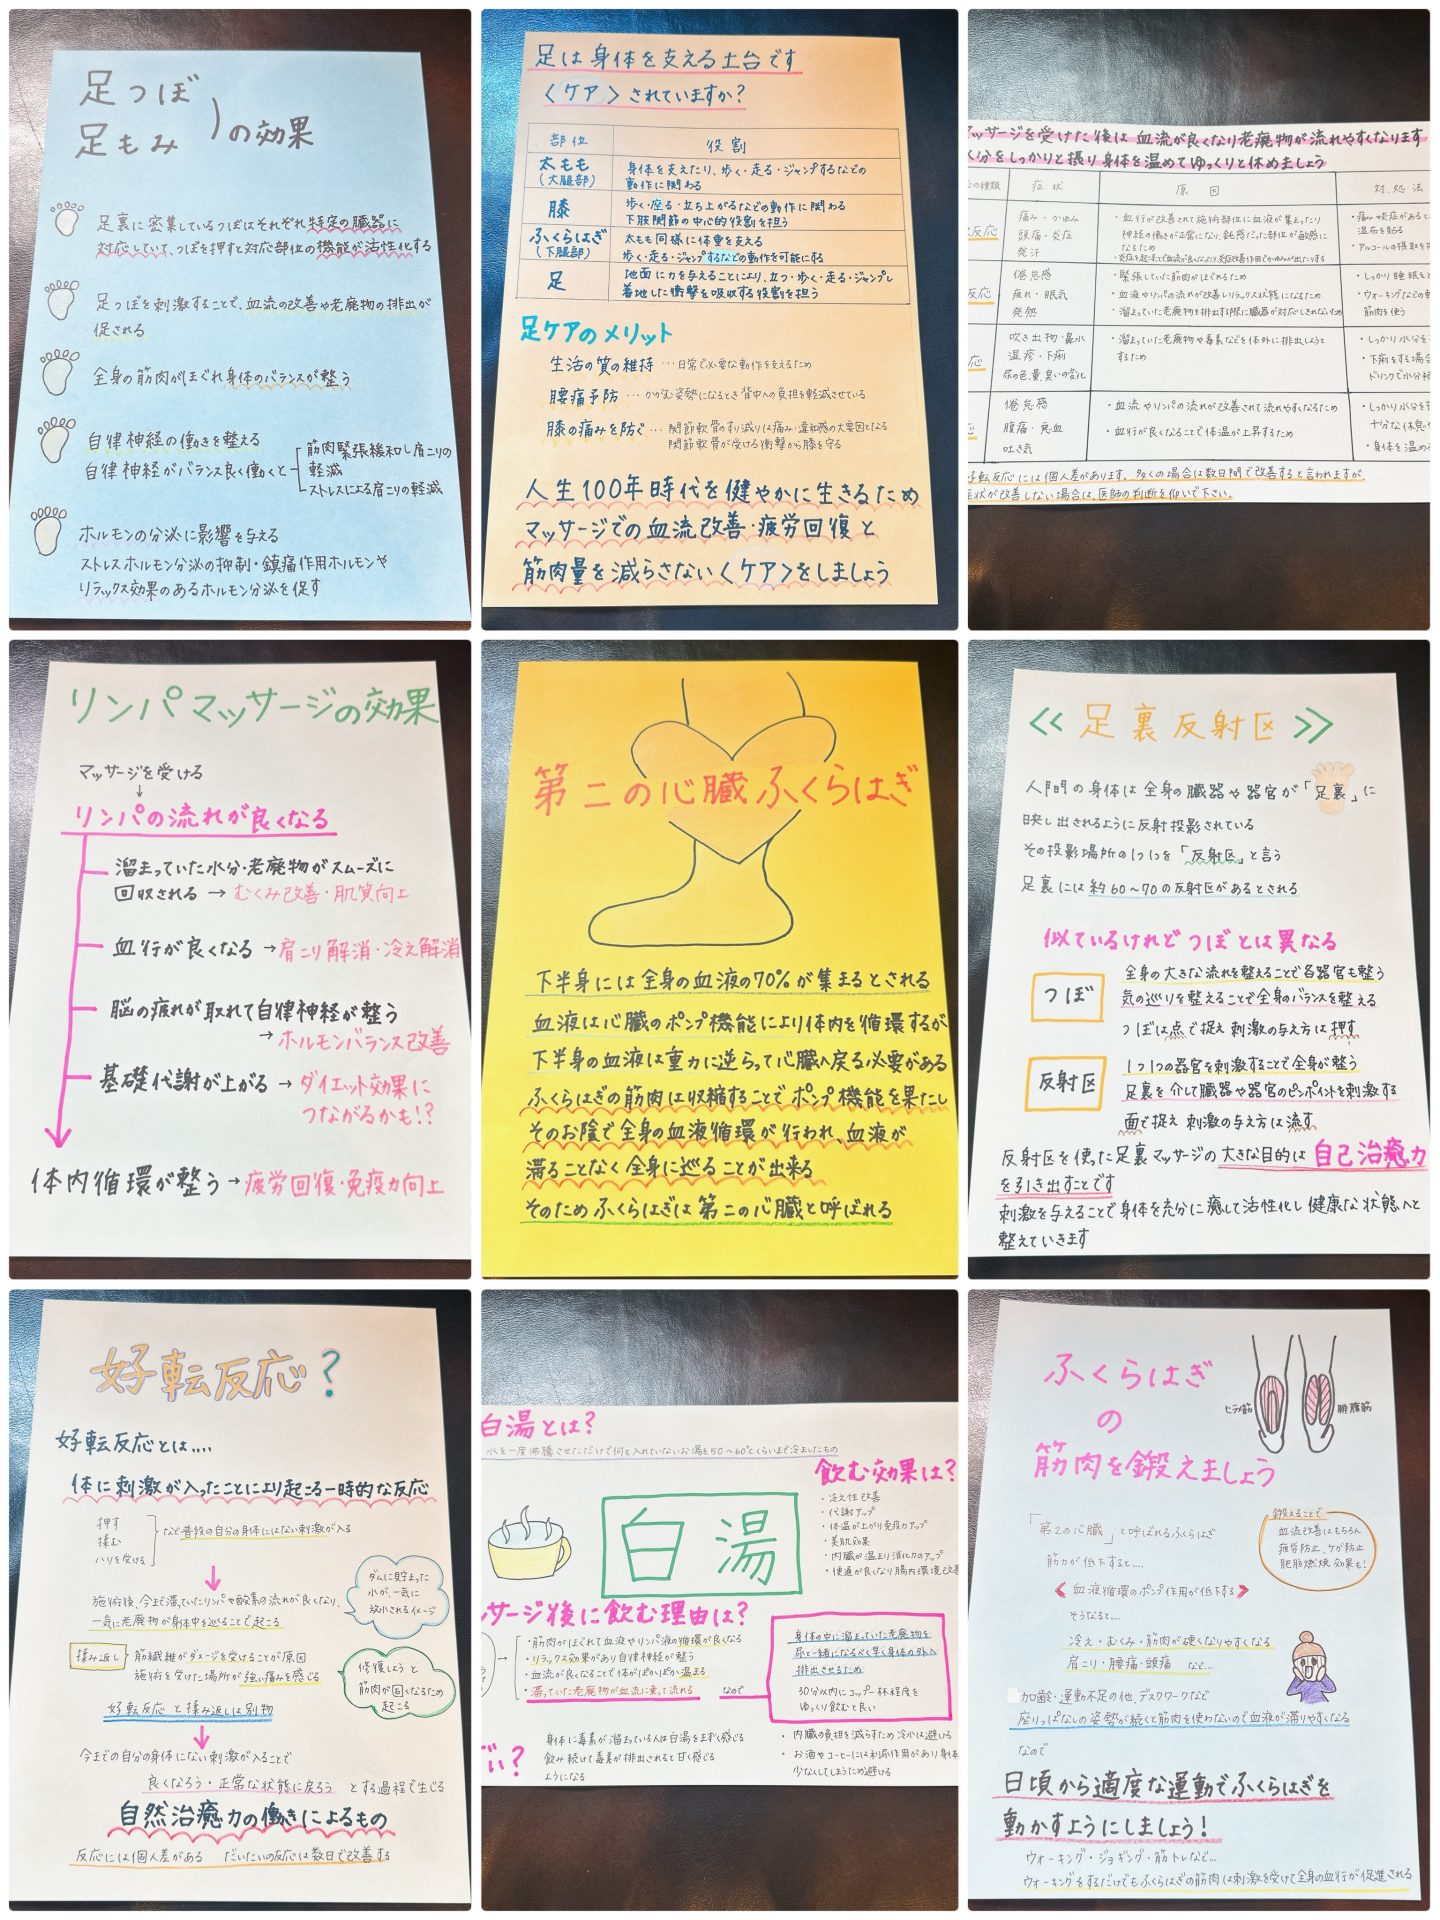 足つぼ
足もみ
の効果
足裏に密集しているつぼはそれぞれ特定の臓器に
対応していて、つぼを押すと対応部位の機能が活性化する
足つぼを刺激することで、血流の改善や老廃物の排出が
促される
全身の筋肉がほぐれ身体のバランスが整う
自律神経の働きを整える
自律神経がバランス良く働くと
筋肉緊張緩和し肩こりの
軽減
ストレスによる肩こりの軽減
ホルモンの分泌に影響を与える
ストレスホルモン分泌の抑制・鎮痛作用ホルモンや
リラックス効果のあるホルモン分泌を促す
足は身体を支える土台です
〈ケア〉されていますか?
部位 役割
太もも
(大腿部)
身体を支えたり、歩く・走る・ジャンプするなどの
動作に関わる
膝
歩く・座る・立ち上がるなどの動作に関わる
下肢関節の中心的役割を担う
ふくらはぎ
(下腿部)
太もも同様に体重を支える
歩く・走る・ジャンプするなどの動作を可能にする
足
地面に力を与えることにより、立つ・歩く・走る・ジャンプし
着地した衝撃を吸収する役割を担う
足ケアのメリット
生活の質の維持 …日常で必要な動作を支えるため
腰痛予防 … かがむ姿勢になるとき背中への負担を軽減させている
膝の痛みを防ぐ … 関節軟骨のすり減りは痛み・違和感の大要因となる
関節軟骨が受ける衝撃から膝を守る
人生100年時代を健やかに生きるため
マッサージでの血流改善・疲労回復と
筋肉量を減らさない〈ケア〉をしましょう
マッサージを受けた後は血流が良くなり老廃物が流れやすくなります
水分をしっかりと摂り身体を温めてゆっくりと休めましょう
の種類 症状 原因 対処法
反応
痛み・かゆみ
頭痛・炎症
発汗
・血行が改善されて施術部位に血液が集まったり
神経の働きが正常になり、鈍感だった部位が敏感に
なるため
・炎症を起こすことで血流が良くなったり、炎症改善作用でかゆみが出たりする
・痛みや炎症があると
湿布を貼る
・アルコールの摂取を
反応
倦怠感
疲れ・眠気
発熱
・緊張していた筋肉がほぐれるため
・血液やリンパの流れが改善しリラックス状態になるため
・溜まっていた老廃物を排出する際に臓器が対応しきれないため
・しっかり睡眠を
・ウォーキングなどの
筋肉を使う
応
吹き出物・鼻水
湿疹・下痢
尿の色、量、臭いの変化
・溜まっていた老廃物や毒素などを体外に排出しようと
するため
・しっかり水分を
・下痢をする場合
ドリンクで水分補
応
倦怠感
腹痛・貧血
吐き気
・血流やリンパの流れが改善されて流れやすくなるため
・血行が良くなることで体温が上昇するため
・しっかり水分を
十分な休息
・身体を温め
好転反応には個人差があります。多くの場合は数日間で改善すると言われますが、
症状が改善しない場合は、医師の判断を仰いで下さい。
リンパマッサージの効果
マッサージを受ける
↓
リンパの流れが良くなる
溜まっていた水分・老廃物がスムーズに
回収される → むくみ改善・肌質向上
血行が良くなる → 肩こり解消・冷え解消
脳の疲れが取れて自律神経が整う
→ ホルモンバランス改善
基礎代謝が上がる → ダイエット効果に
つながるかも!?
体内循環が整う → 疲労回復・免疫力向上
第二の心臓ふくらはぎ
下半身には全身の血液の70%が集まるとされる
血液は心臓のポンプ機能により体内を循環するが
下半身の血液は重力に逆らって心臓へ戻る必要がある
ふくらはぎの筋肉は収縮することでポンプ機能を果たし
そのお陰で全身の血液循環が行われ、血液が
滞ることなく全身に巡ることが出来る
そのためふくらはぎは第二の心臓と呼ばれる
≪ 足裏反射区 ≫
人間の身体は全身の臓器や器官が「足裏」に
映し出されるように反射投影されている
その投影場所の1つ1つを「反射区」と言う
足裏には約60〜70の反射区があるとされる
似ているけれどつぼとは異なる
つぼ
全身の大きな流れを整えることで各器官も整う
気の巡りを整えることで全身のバランスを整える
つぼは点で捉え刺激の与え方は押す
反射区
1つ1つの器官を刺激することで全身が整う
足裏を介して臓器や器官のピンポイントを刺激する
面で捉え刺激の与え方は流す
反射区を使った足裏マッサージの大きな目的は自己治癒力
を引き出すことです
刺激を与えることで身体を充分に癒して活性化し健康な状態へと
整えていきます
好転反応?
好転反応とは….
体に刺激が入ったことにより起こる一時的な反応
押す
揉む
ハリを受ける
など普段の自分の身体にはない刺激が入る
施術後、今まで滞っていたリンパや酸素の流れが良くなり、
一気に老廃物が身体中を巡ることで起こる
ダムに貯まった
水が、一気に
放水されるイメージ
揉み返し
筋繊維がダメージを受けることが原因
施術を受けた場所が強い痛みを感じる
修復しようと
筋肉が固くなるため
起こる
好転反応と揉み返しは別物
今までの自分の身体にない刺激が入ることで
良くなろう・正常な状態に戻ろう とする過程で生じる
自然治癒力の働きによるもの
反応には個人差がある だいたいの反応は数日で改善する
白湯とは?
水を一度沸騰させただけで何も入れていないお湯を50〜60℃くらいまで冷ましたもの
飲む効果は?
・冷え性改善
・代謝アップ
・体温が上がり免疫力アップ
・美肌効果
・内臓が温まり消化力のアップ
・便通が良くなり腸内環境改善
白湯
ッサージ後に飲む理由は?
・筋肉がほぐれて血液やリンパ液の循環が良くなる
・リラックス効果があり自律神経が整う
・血流が良くなることで体がぽかぽか温まる
・滞っていた老廃物が血流に乗って流れる
なので
身体の中に溜まっていた老廃物を
尿と一緒になるべく早く身体の外へ
排出させるため
30分以内にコップ一杯程度を
ゆっくり飲むと良い
い?
身体に毒素が溜っている人は白湯をまずく感じる
飲み続けて毒素が排出されると甘く感じる
ようになる
・内臓の負担を減らすため冷水は避ける
・お酒やコーヒーには利尿作用があり身体
少なくしてしまうため避ける
ふくらはぎ
の
筋肉を鍛えましょう
ヒラメ筋
腓腹筋
「第2の心臓」と呼ばれるふくらはぎ
筋力が低下すると….
《血液循環のポンプ作用が低下する》
そうなると….
冷え・むくみ・筋肉が硬くなりやすくなる
肩こり・腰痛・頭痛 など…
鍛えることで
血流改善はもちろん
疲労防止、ケガ防止
肥脂燃焼効果も!
加齢・運動不足の他、デスクワークなど
座りっぱなしの姿勢が続くと筋肉を使わないので血液が滞りやすくなる
なので
日頃から適度な運動でふくらはぎを
動かすようにしましょう!
ウォーキング・ジョギング・筋トレなど…
ウォーキングをするだけでもふくらはぎの筋肉は刺激を受けて全身の血行が促進される